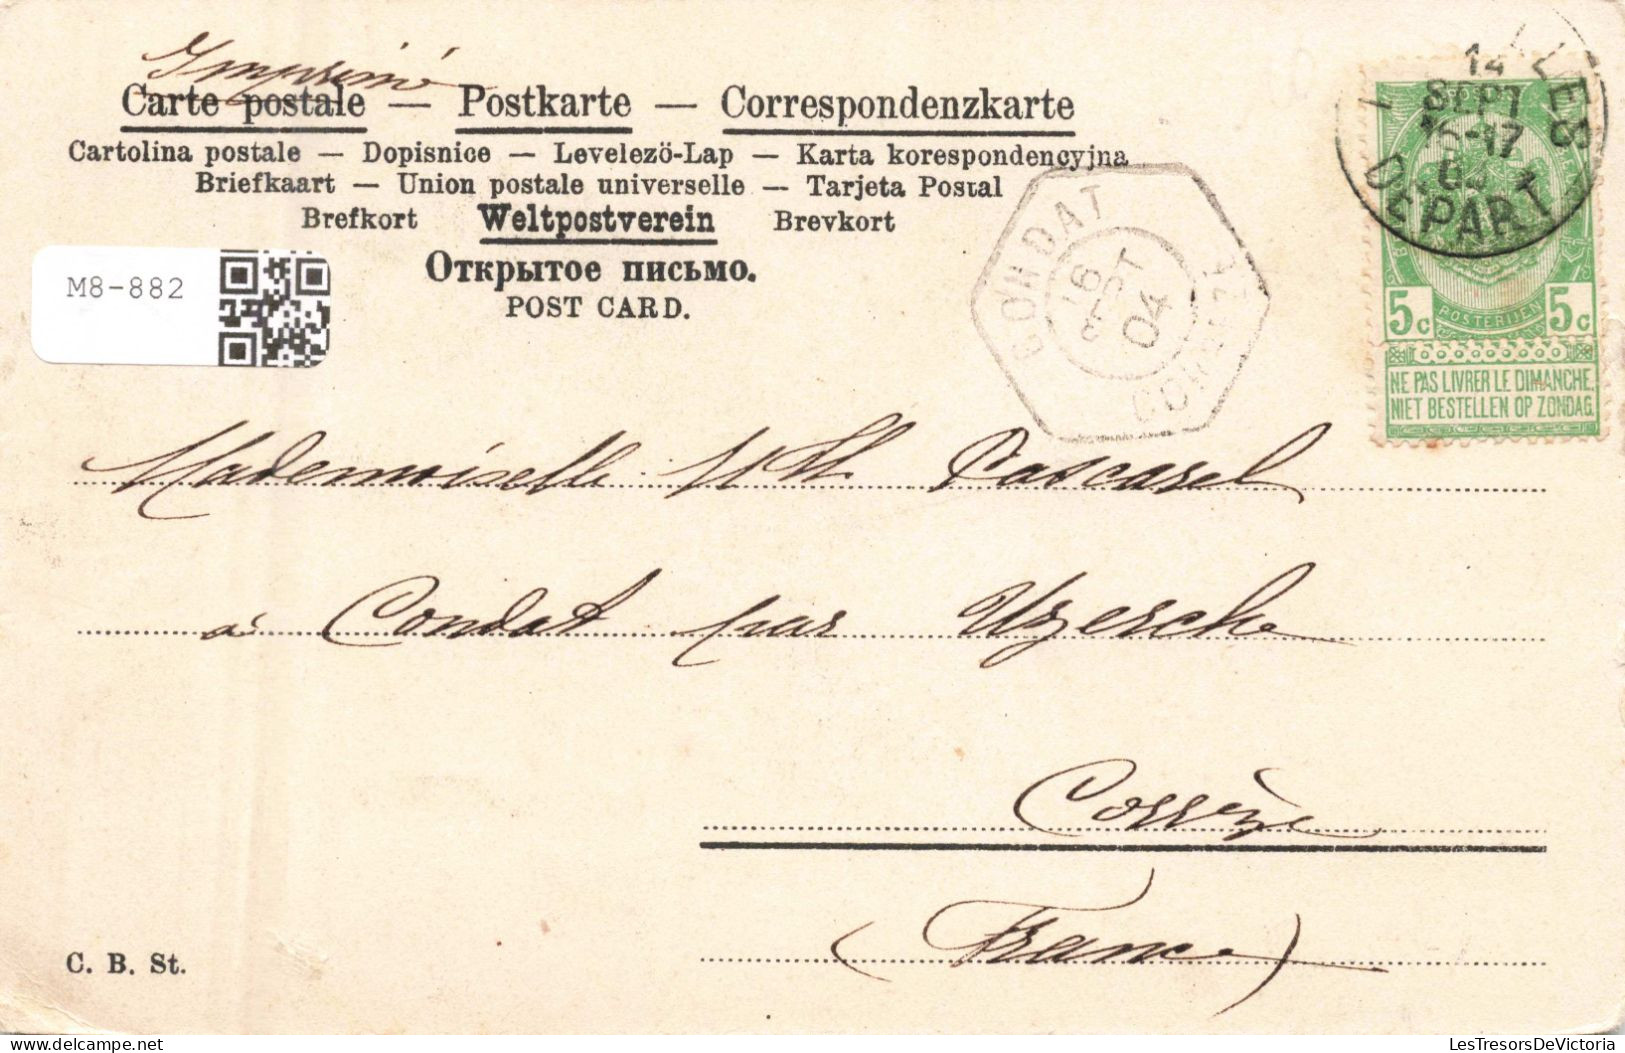 Imprimé
Carte postale — Postkarte — Correspondenzkarte
Cartolina postale — Dopisnice — Levelezö-Lap — Karta korespondencyjna
Briefkaart — Union postale universelle — Tarjeta Postal
Brefkort Weltpostverein Brevkort
Открытое письмо.
POST CARD.
M8-882
14
SEPT
15-17
DEPART
CONDAT
16
SEPT
04
CORRÈZE
5c POSTERIJEN 5c
NE PAS LIVRER LE DIMANCHE.
NIET BESTELLEN OP ZONDAG.
Mademoiselle Mth
à Condat par Uzerche
Corrèze
(France)
C. B. St.
delcampe.net
LesTresorsDeVictoria